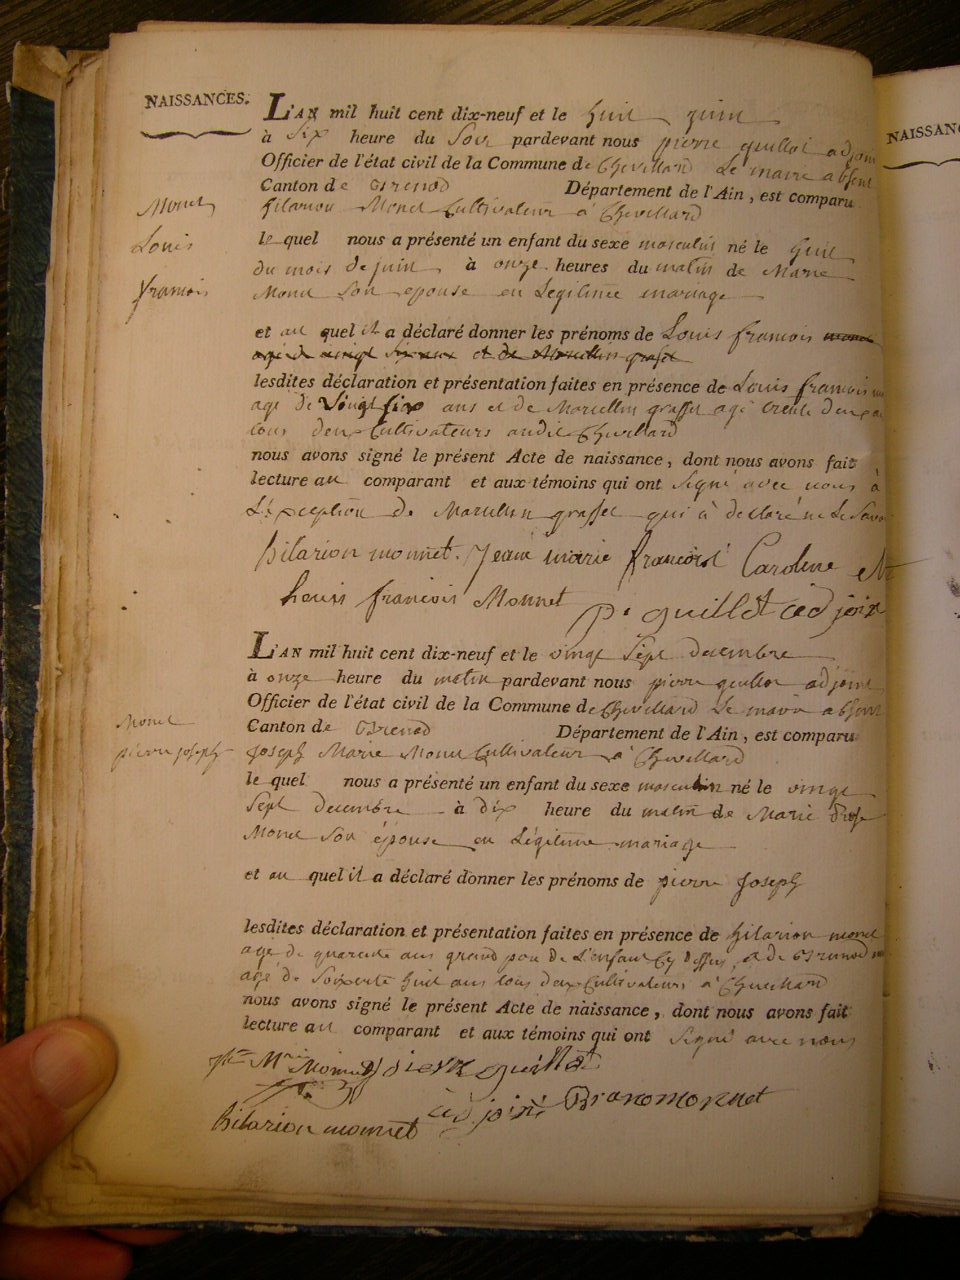 NAISSANCES.
L'AN mil huit cent dix-neuf et le huit juin
à Six heure du Soir pardevant nous pierre guillot adjoint
Officier de l'état civil de la Commune de Chevillard Le maire absent
Canton de Brenod Département de l'Ain, est comparu
hilarion Monet Cultivateur à Chevillard
le quel nous a présenté un enfant du sexe masculin né le huit
du mois de juin à onze heures du matin de Marie
Monet Son epouse en Légitime mariage
et au quel il a déclaré donner les prénoms de Louis francois
lesdites déclaration et présentation faites en présence de Louis francois
agé de vingt six ans et de Marcellin grasset agé trente deux
tous deux Cultivateurs audit Chevillard
nous avons signé le présent Acte de naissance, dont nous avons fait
lecture au comparant et aux témoins qui ont Signé avec nous à
L'éxception de Marcellin grasset qui à déclaré ne Le Savoir
hilarion monnet. Jean marie françois Caroline
Louis francois Monnet p. guillot adjoint
Monet
Louis
francois
L'AN mil huit cent dix-neuf et le vingt Sept decembre
à onze heure du matin pardevant nous pierre guillot adjoint
Officier de l'état civil de la Commune de Chevillard Le maire absent
Canton de Brenod Département de l'Ain, est comparu
Joseph Marie Monet Cultivateur à Chevillard
le quel nous a présenté un enfant du sexe masculin né le vingt
Sept decembre à dix heure du matin de Marie
Monet Son épouse en Légitime mariage
et au quel il a déclaré donner les prénoms de pierre Joseph
lesdites déclaration et présentation faites en présence de hilarion monet
agé de quarente ans grand de L'enfant Cy dessus, et de Brunod
agé de Soixente huit ans tous deux Cultivateurs à Chevillard
nous avons signé le présent Acte de naissance, dont nous avons fait
lecture au comparant et aux témoins qui ont Signé avec nous
pierre guillot
adjoint
hilarion monnet
Monet
pierre joseph
NAISSANC